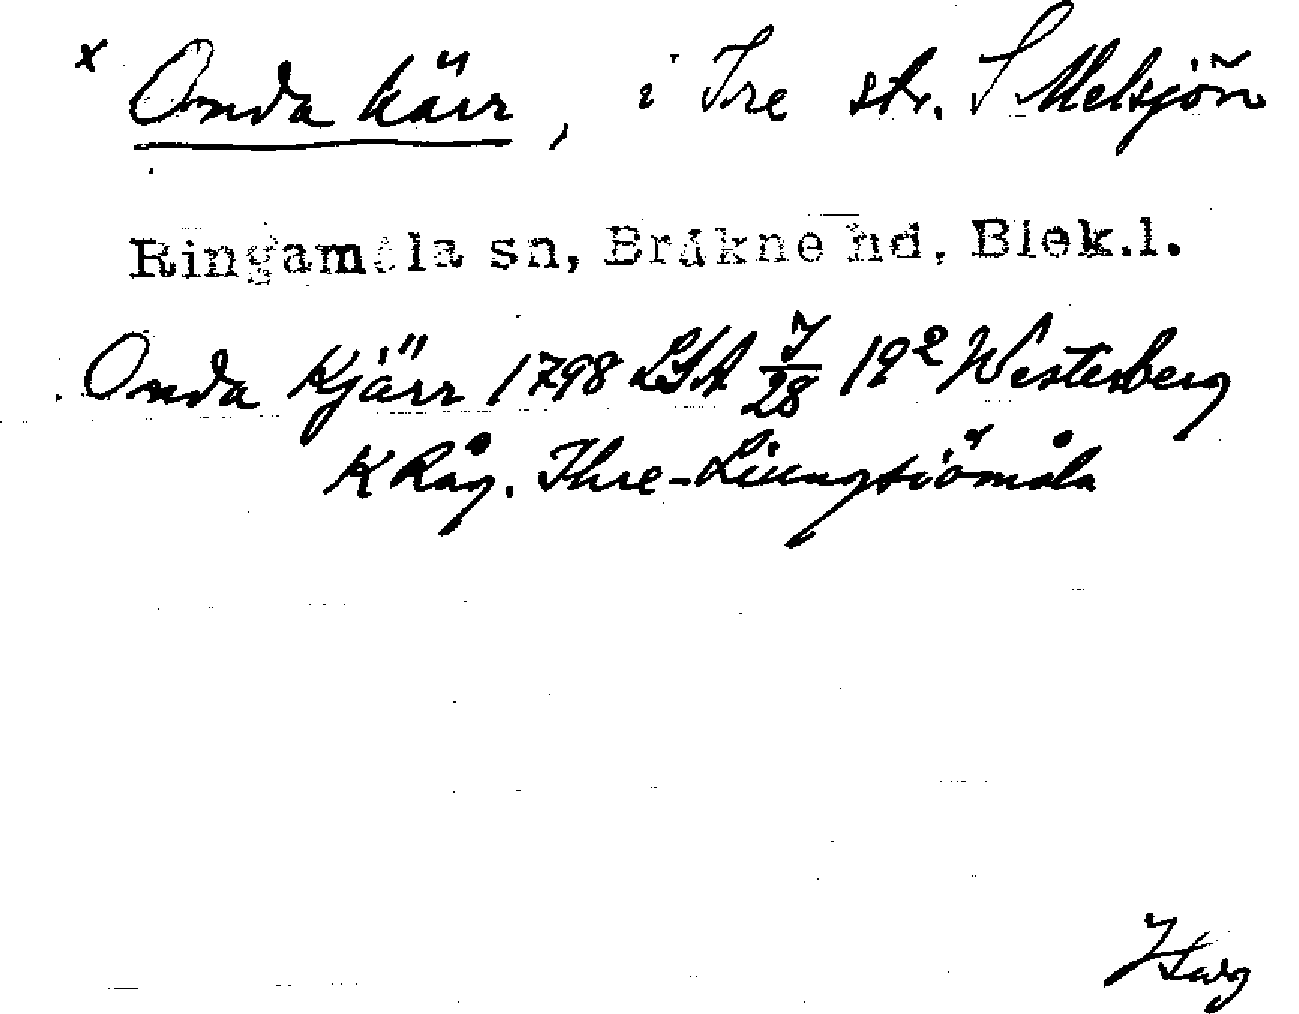 x Onda kärr, i Ire str. S Melsjön
Ringamåla sn, Bräkne hd, Blek.l.
Onda Kjärr 1798 LSA 7/28 19² Westerberg
K Råg. Ihre-Liungsiömåla